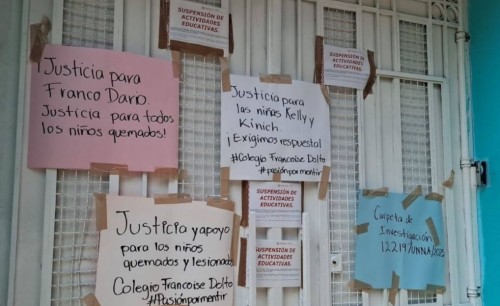 SUSPENSIÓN DE
ACTIVIDADES
EDUCATIVAS.
SUSPENSIÓN DE
ACTIVIDADES
EDUCATIVAS.
¡Justicia para
Franco Dario.
Justicia para todos
los niños quemados!
Justicia para
las niñas Kelly y
Kinich.
¡Exigimos respuesta!
#Colegio Francoise Dolto
#pasiónpormentir
Justicia y apoyo
para los niños
quemados y lesionados
Colegio Francoise Dolto
#Pasiónpormentir
SUSPENSIÓN DE
ACTIVIDADES
EDUCATIVAS.
SUSPENSIÓN DE
ACTIVIDADES
EDUCATIVAS.
Carpeta de
Investigación